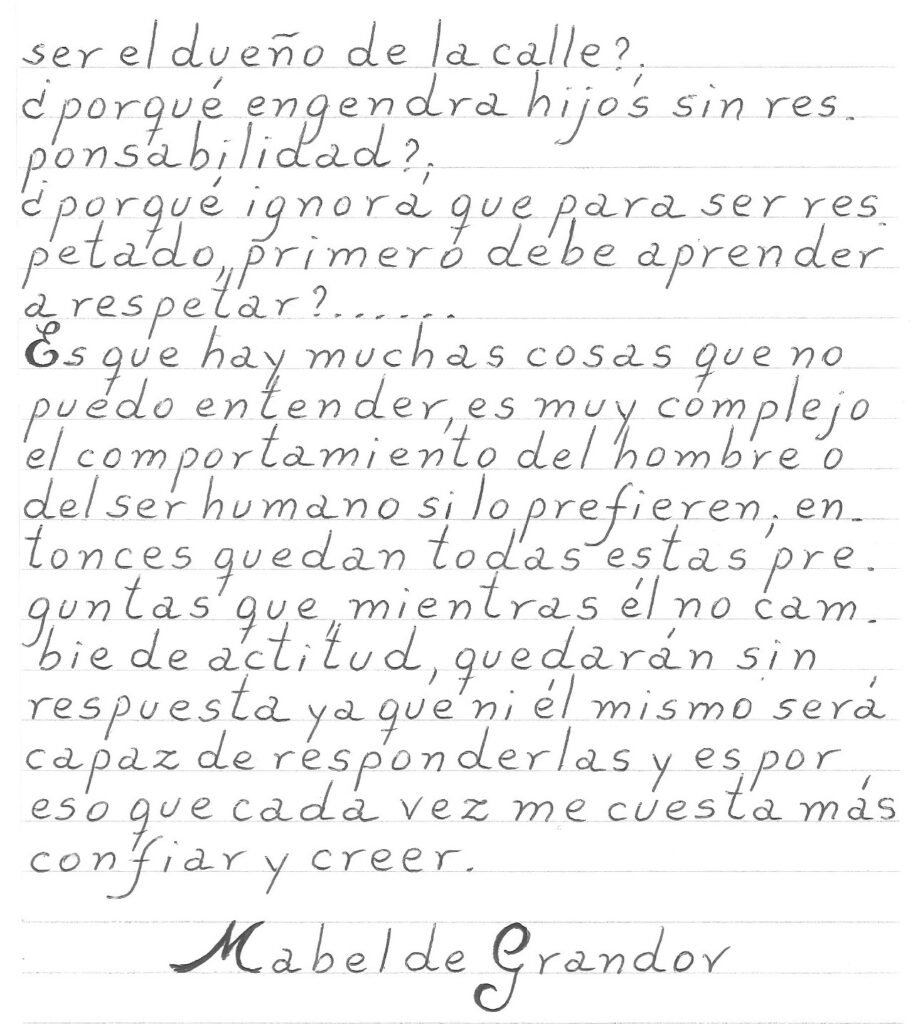 ser el dueño de la calle?.
¿porqué engendra hijos sin res-
ponsabilidad?.
¿porqué ignora que para ser res-
petado, primero debe aprender
a respetar?.......
Es que hay muchas cosas que no
puedo entender, es muy complejo
el comportamiento del hombre o
del ser humano si lo prefieren, en-
tonces quedan todas estas pre-
guntas que, mientras él no cam-
bie de actitud, quedarán sin
respuesta ya que ni él mismo será
capaz de responderlas y es por
eso que cada vez me cuesta más
confiar y creer.
Mabel de Grandov